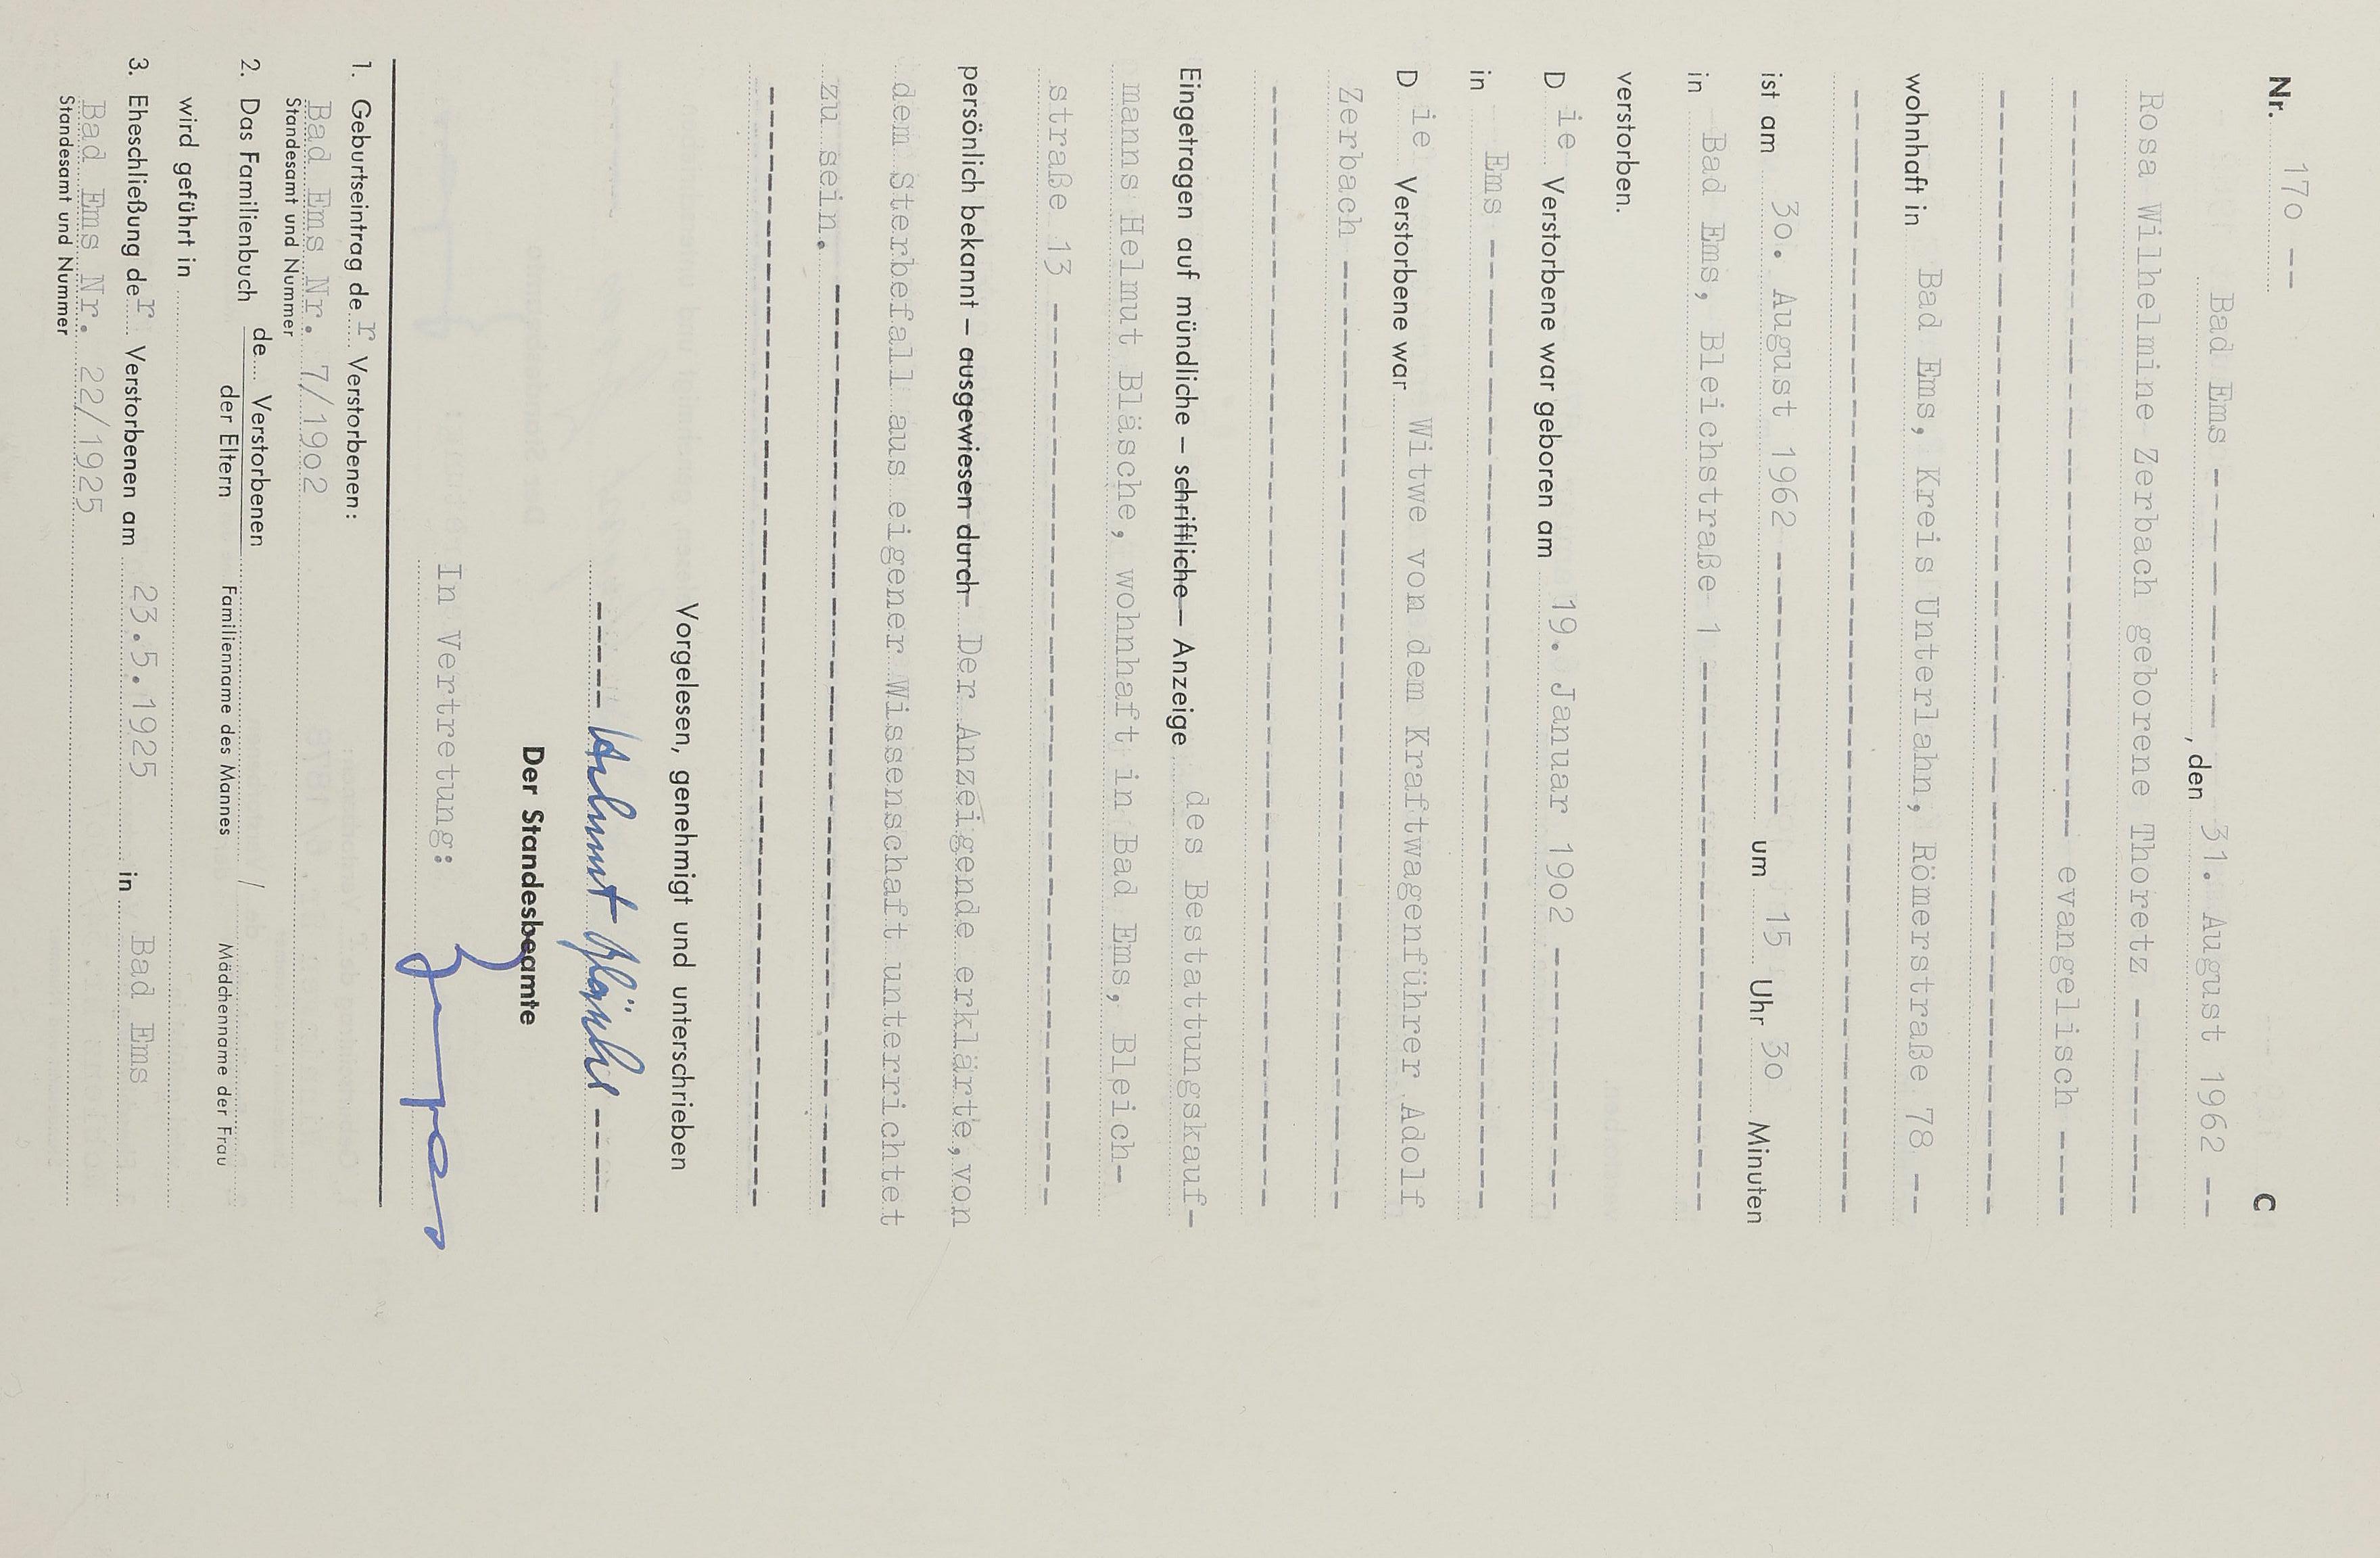 Nr. 17o -- C
Bad Ems ----------, den 31. August 1962 --
Rosa Wilhelmine Zerbach geborene Thoretz -------
------------------------------ evangelisch ----
------------------------------------------------
wohnhaft in Bad Ems, Kreis Unterlahn, Römerstraße 78 --
------------------------------------------------
ist am 3o. August 1962 ----------- um 15 Uhr 3o Minuten
in Bad Ems, Bleichstraße 1 ----------------------
verstorben.
Die Verstorbene war geboren am 19. Januar 19o2 -----------
in Ems ------------------------------------------
Die Verstorbene war Witwe von dem Kraftwagenführer Adolf
Zerbach -----------------------------------------
------------------------------------------------
Eingetragen auf mündliche – schriftliche – Anzeige des Bestattungskauf-
manns Helmut Bläsche, wohnhaft in Bad Ems, Bleich-
straße 13 ---------------------------------------
persönlich bekannt – ausgewiesen durch Der Anzeigende erklärte, von
dem Sterbefall aus eigener Wissenschaft unterrichtet
zu sein. ----------------------------------------
------------------------------------------------
Vorgelesen, genehmigt und unterschrieben
----- Helmut Bläsche -----
Der Standesbeamte
In Vertretung:
1. Geburtseintrag der Verstorbenen:
Bad Ems Nr. 7/19o2
Standesamt und Nummer
2. Das Familienbuch de.... Verstorbenen /
der Eltern Familienname des Mannes Mädchenname der Frau
wird geführt in
3. Eheschließung der Verstorbenen am 23.5.1925 in Bad Ems
Bad Ems Nr. 22/1925
Standesamt und Nummer